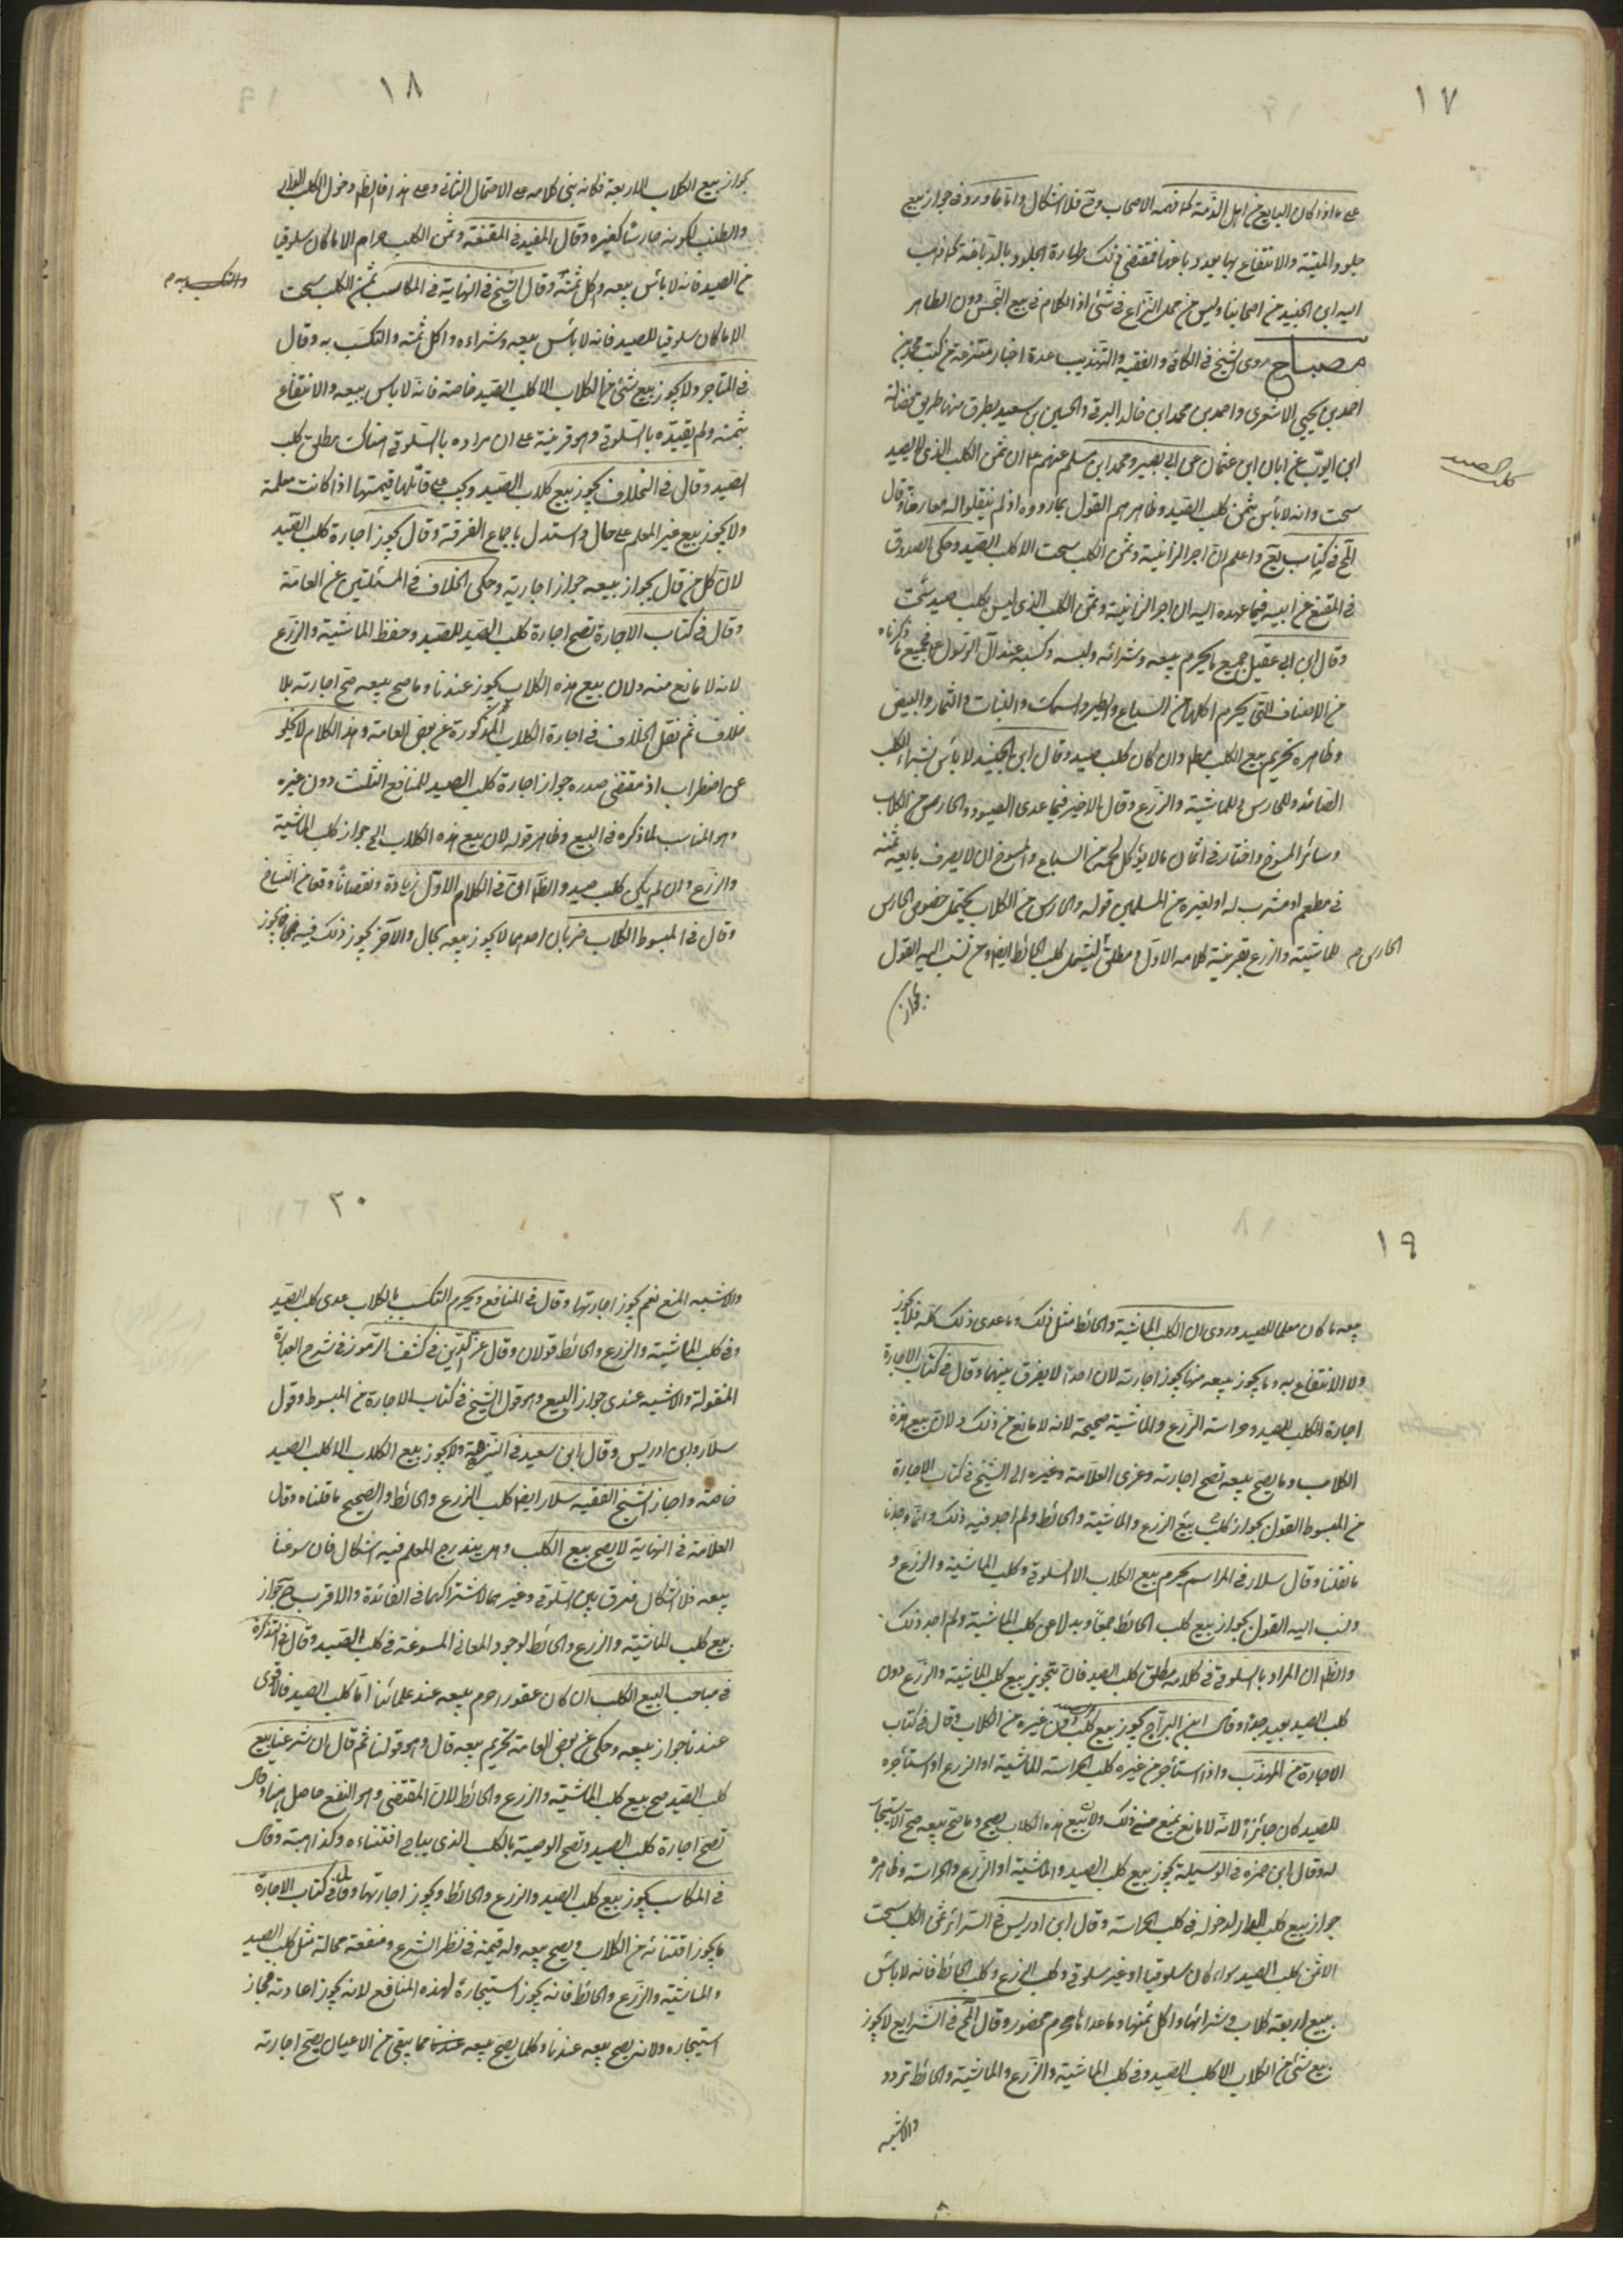 ١٧
على ما اذا كان البايع من اهل الذمة كما فهمه الاصحاب وح فلا اشكال واما ما ورد فى جواز بيع
جلود الميتة والانتفاع بها بعد دباغها فمقتضى ذلك طهارة الجلود بالدباغة كما ذهب
اليه ابن الجنيد من اصحابنا وليس من محل النزاع فى شئ اذ الكلام فى بيع النجس دون الطاهر
مصباح روى الشيخ فى الكافى والفقيه والتهذيب عدة اخبار متفرقة من كتب محمد بن
احمد بن يحيى الاشعرى واحمد بن محمد ابن خالد البرقى والحسين بن سعيد بطرق منها طريق فضالة
ابن ايوب عن ابان ابن عثمان عن ابى بصير ومحمد ابن مسلم عنهم ع ان ثمن الكلب الذى لا يصيد
كلب الصيد
سحت وانه لا بأس بثمن كلب الصيد وظاهرهم القول بما رووه اذ لم ينقلوا له معارضا وقال
فى كتاب واعلم ان اجر الزانية وثمن الكلب سحت الا كلب الصيد وحكى الصدوق
فى المقنع عن ابيه فيما عهده اليه ان اجر الزانية وثمن الكلب الذى ليس بكلب صيد سحت
وقال ابن ابى عقيل جميع ما يحرم بيعه وشرائه ولبسه وكسبه عند آل الرسول ع جميع ما ذكرناه
من الاصناف التى يحرم اكلها من السباع والطير والسمك والنبات والثمار والبيض
وظاهره تحريم بيع الكلب مطم وان كان كلب صيد وقال ابن الجنيد لا بأس بشراء الكلب
الصائد والحارس للماشية والزرع وقال بالاخير فيما عدى الصيود والحارس من الكلاب
وسائر المسوخ واختار فى اثمان ما لا يؤكل لحمه من السباع والمسوخ ان لا يصرف بايعه ثمنه
فى مطعم او مشرب له او لغيره من المسلمين قوله والحارس من الكلاب يحتمل خصوص الحارس
الحارس م للماشية والزرع بقرينة كلامه الاول ومطلق ليشمل كلب الحائط ايض ومن نسب اليه القول
بجواز
١٨
بجواز بيع الكلاب الاربعة فكانه بنى كلامه على الاحتمال الثانى وعلى هذا فالظم دخول الكلب الدار
والطنب لكونه حارسا كغيره وقال المفيد فى المقنعة وثمن الكلب حرام الا ما كان سلوقيا
من الصيد فانه لا بأس ببيعه واكل ثمنه وقال الشيخ فى النهاية فى المكاسب ثمن الكلب سحت
والتكسب به م
الا ما كان سلوقيا للصيد فانه لا بأس ببيعه وشراءه واكل ثمنه والتكسب به وقال
فى المتاجر ولا يجوز بيع شئ من الكلاب الا كلب الصيد خاصة فانه لا باس ببيعه والانتفاع
بثمنه ولم يقيده بالسلوقى وهو قرينة على ان مراده بالسلوقى هناك مطلق كلب
الصيد وقال فى الخلاف يجوز بيع كلاب الصيد ويجب على قاتلها قيمتها اذا كانت معلمة
ولا يجوز بيع غير المعلم على حال واستدل باجماع الفرقة وقال يجوز اجارة كلب الصيد
لان كل من قال بجواز بيعه جواز اجارته وحكى الخلاف فى المسئلتين عن العامة
وقال فى كتاب الاجارة تصح اجارة كلب الصيد للصيد وحفظ الماشية والزرع
لانه لا مانع منه ولان بيع هذه الكلاب يجوز عندنا وما صح بيعه صح اجارته بلا
خلاف ثم نقل الخلاف فى اجارة الكلاب المذكورة عن بعض العامة وهذا الكلام لا يخلو
عن اضطراب اذ مقتضى صدره جواز اجارة كلب الصيد للمنافع الثلث دون غيره
وهو المناسب لما ذكره فى البيع وظاهر قوله لان بيع هذه الكلاب الخ جواز كلب الماشية
والزرع وان لم يكن كلب صيد والظم ان فى الكلام الاول زيادة ونقصانا وقعا من النساخ
وقال فى المبسوط الكلاب ضربان احدهما لا يجوز بيعه بحال والآخر يجوز ذلك فيه فما يجوز
١٩
بيعه ما كان معلما للصيد وروى ان الكلب الماشية والحائط مثل ذلك وما عدى ذلك كله فلا يجوز
ولا الانتفاع به وما يجوز بيعه منها يجوز اجارته لان احدا لا يفرق بينهما وقال فى كتاب الاجارة
اجارة الكلب للصيد وحراسة الزرع والماشية صحيحة لانه لا مانع من ذلك ولان بيع هذه
الكلاب وما يصح بيعه تصح اجارته وعزى العلامة وغيره الى الشيخ فى كتاب الاجارة
من المبسوط القول بجواز كلب بيع الزرع والماشية والحائط ولم اجد فيه ذلك وانما وجدنا
ما نقلنا وقال سلار فى المراسم يحرم بيع الكلاب الا السلوقى وكلب الماشية والزرع و
ونسب اليه القول بجواز بيع كلب الحائط جمعا وبدلا عن كلب الماشية ولم اجد ذلك
والظم ان المراد بالسلوقى فى كلامه مطلق كلب الصيد فان تجويز بيع كلب الماشية والزرع دون
كلب الصيد بعيد جدا وقال ابن البراج يجوز بيع كلب الصيد دون غيره من الكلاب وقال فى كتاب
الاجارة من المهذب واذا استأجر من غيره كلب لحراسة الماشية او الزرع او استأجره
للصيد كان جائزا لانه لا مانع يمنع من ذلك ولان بيع هذه الكلاب يصح وما صح بيعه صح الاستيجار
له وقال ابن حمزه فى الوسيلة يجوز بيع كلب الصيد والماشية او الزرع والحراسة وظاهره
جواز بيع كلب الدار لدخوله فى كلب الحراسة وقال ابن ادريس فى السرائر ثمن الكلب سحت
الا ثمن كلب الصيد سواء كان سلوقيا او غير سلوقى وكلب الزرع وكلب الحائط فانه لا بأس
ببيع اربعة كلاب وشرائها واكل ثمنها وما عداها محرم محضور وقال المح فى الشرايع لا يجوز
بيع شئ من الكلاب الا كلب الصيد وفى كلب الماشية والزرع والماشية والحائط تردد
والاشبه
٢٠
والاشبه المنع نعم يجوز اجارتها وقال فى المنافع ويحرم التكسب بالكلاب عدى كلب الصيد
وفى كلب الماشية والزرع والحائط قولان وقال عز الدين فى كشف الرموز فى شرح العبارة
المنقولة والاشبه عندى جواز البيع وهو قول الشيخ فى كتاب الاجارة من المبسوط وقول
سلار وابن ادريس وقال ابن سعيد فى النزهة ولا يجوز بيع الكلاب الا كلب الصيد
خاصة واجاز الشيخ الفقيه سلار ايض كلب الزرع والحائط والصحيح ما قلناه وقال
العلامة فى النهاية لا يصح بيع الكلب وهل يندرج المعلم فيه اشكال فان سوغنا
بيعه فلا اشكال فرق بين السلوقى وغيرهما لاشتراكهما فى الفائدة والاقرب ح جواز
بيع كلب الماشية والزرع والحائط لوجود المعانى المسوغة فى كلب الصيد وقال فى التذكرة
فى مباحث البيع الكلب ان كان عقورا حرم بيعه عند علمائنا اما كلب الصيد فالاقوى
عندنا جواز بيعه وحكى عن بعض العامة تحريم بيعه قال وهو قولنا ثم قال ان شرعنا بيع
كلب الصيد صح بيع كلب الماشية والزرع والحائط لان المقتضى وهو النفع حاصل هنا وقال
تصح اجارة كلب الصيد وتصح الوصية بالكلب الذى يباح اقتناءه وكذا هبته وقال
فى المكاسب يجوز بيع كلب الصيد والزرع والحائط ويجوز اجارتها وقال فى كتاب الاجارة
ما يجوز اقتنائه من الكلاب ويصح بيعه وله قيمة فى نظر الشرع ومنفعة محللة مثل كلب الصيد
والماشية والزرع والحائط فانه يجوز استيجاره لهذه المنافع لانه يجوز اعارته فجاز
استيجاره ولانه يصح بيعه عندنا وكلما يصح بيعه عندنا مما يبقى من الاعيان يصح اجارته